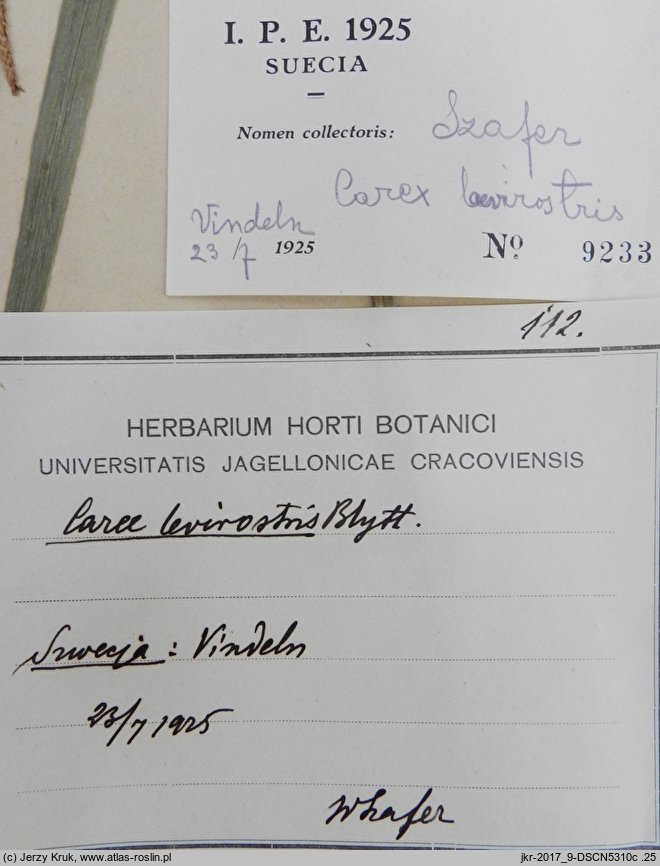 I. P. E. 1925
SUECIA
Nomen collectoris: Szafer
Carex laevirostris
Vindeln
23/7 1925 No 9233
112.
HERBARIUM HORTI BOTANICI
UNIVERSITATIS JAGELLONICAE CRACOVIENSIS
Carex levirostris Blytt.
Szwecja: Vindeln
23/7 1925
WSzafer
(c) Jerzy Kruk, www.atlas-roslin.pl jkr-2017_9-DSCN5310c .25